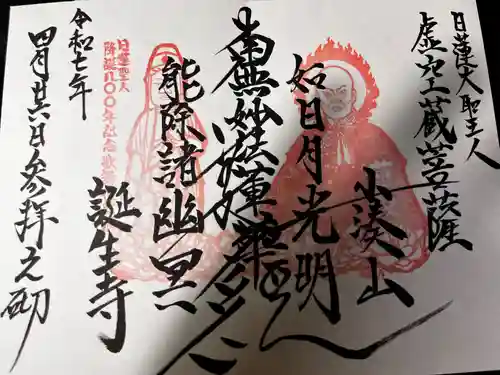 日蓮大聖人
虚空蔵菩薩
小湊山
如日月光明
南無妙法蓮華経
能除諸幽黒
誕生寺
日蓮聖人
降誕八〇〇年
令和七年
四月廿六日参拝之砌